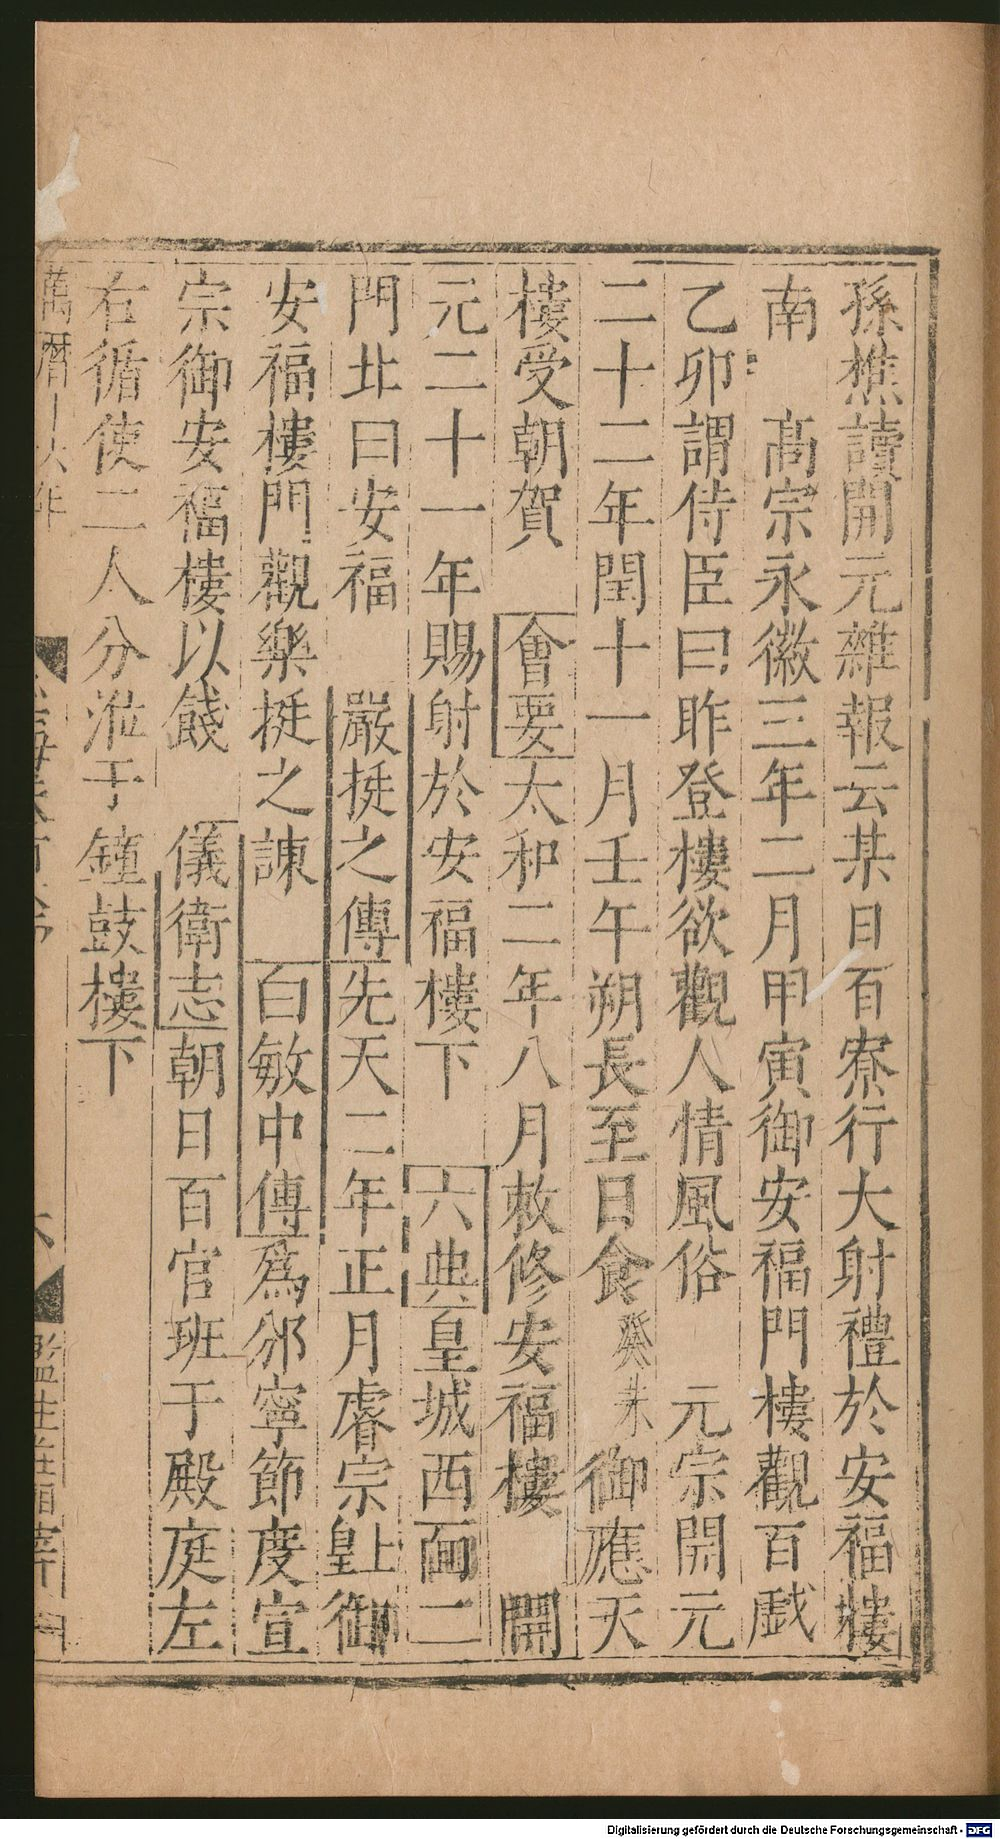 孫樵讀開元雜報云某日百寮行大射禮於安福樓
南　髙宗永徽三年二月甲寅御安福門樓觀百戲
乙卯謂侍臣曰昨登樓欲觀人情風俗　元宗開元
二十二年閏十一月壬午朔長至日食癸未御應天
樓受朝賀　會要太和二年八月敕修安福樓　開
元二十一年賜射於安福樓下　六典皇城西面二
門北曰安福　嚴挺之傳先天二年正月睿宗皇上御
安福樓門觀樂挺之諫　白敏中傳爲邠寧節度宣
宗御安福樓以餞　儀衛志朝日百官班于殿庭左
右循使二人分涖于鐘鼓樓下
萬曆十六年
監生莊
Digitalisierung gefördert durch die Deutsche Forschungsgemeinschaft - DFG